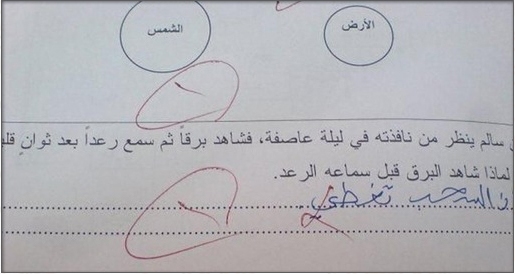 الأرض
الشمس
سالم ينظر من نافذته في ليلة عاصفة، فشاهد برقاً ثم سمع رعداً بعد ثوانٍ
لماذا شاهد البرق قبل سماعه الرعد.
السحب تغطي